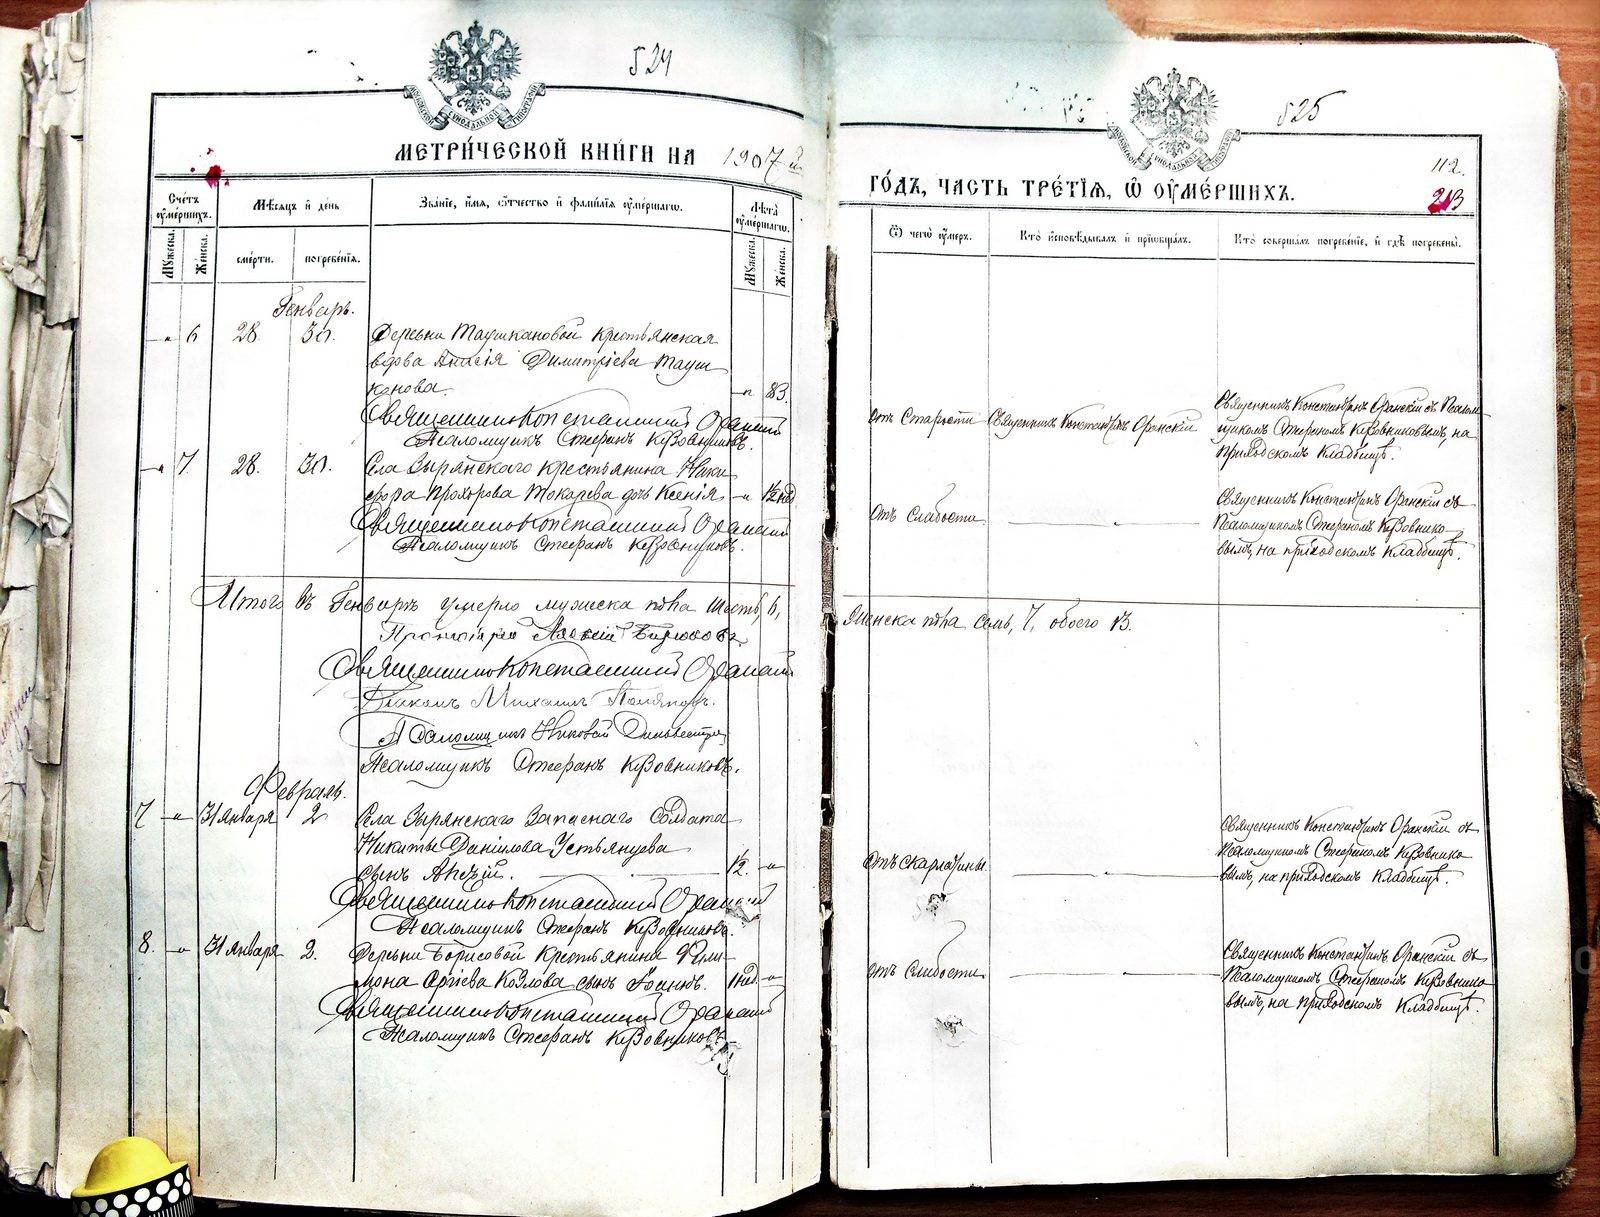 524
МЕТРИ́ЧЕСКОЙ КНИ́ГИ НА 1907 й
Сче́тъ ᲂу҆ме́ршихъ.
Мѣ́сяцъ и҆ де́нь
Зва́нїе, и҆́мя, ѻ҆́тчество и҆ фами́лїя ᲂу҆ме́ршагѡ.
Лѣ́та ᲂу҆ме́ршагѡ.
Мꙋ́жеска.
Же́нска.
сме́рти.
погребе́нїя.
Мꙋ́жеска.
Же́нска.
Генварь.
-„- 6 28 30. Деревни Таушкановой крестьянская
вдова Анисія Димитріева Тауш
канова. -„- 83.
Священникъ Константинъ Оранскій
Псаломщикъ Стефанъ Кузовниковъ.
-„- 7. 28. 30. Села Зырянскаго крестьянина Ники
фора Прохорова Токарева дочь Ксенія -„- 1½ нед
Священникъ Константинъ Оранскій
Псаломщикъ Стефанъ Кузовниковъ.
Итого въ Генварѣ умерло мужеска пола шесть, 6,
Протоіерей Алексій Бирюковъ
Священникъ Константинъ Оранскій
Діаконъ Михаилъ
Псаломщикъ
Псаломщикъ Стефанъ Кузовниковъ.
Февраль.
7 -„- 31 января 2 Села Зырянскаго запаснаго солдата
Никиты Даніилова Устьянцева
сынъ Алексій. 1½. -„-
Священникъ Константинъ Оранскій
Псаломщикъ Стефанъ Кузовниковъ.
8. -„- 31 января 2. Деревни Борисовой крестьянина Фили
мона Сергіева Козлова сынъ Іоаннъ. 1 нед. -„-
Священникъ Константинъ Оранскій
Псаломщикъ Стефанъ Кузовниковъ
525
112.
213
ГО́ДЪ, ЧА́СТЬ ТРЕ́ТЇѦ, Ѽ ОУ҆МЕ́РШИХЪ.
Ѿ чегѡ̀ ᲂу҆́меръ.
Кто̀ и҆сповѣ́дывалъ и҆ прїѡбща́лъ.
Кто̀ соверша́лъ погребе́нїе, и҆ гдѣ̀ погребены̀.
отъ старости
Священникъ Константинъ Оранскій
Священникъ Константинъ Оранскій съ Псалом-
щикомъ Стефаномъ Кузовниковымъ, на
приходскомъ кладбищѣ.
отъ слабости
Священникъ Константинъ Оранскій съ
Псаломщикомъ Стефаномъ Кузовнико
вымъ, на приходскомъ кладбищѣ.
женска пола семь, 7, обоего 13.
отъ скарлатины
Священникъ Константинъ Оранскій съ
Псаломщикомъ Стефаномъ Кузовнико
вымъ, на приходскомъ кладбищѣ.
отъ слабости
Священникъ Константинъ Оранскій съ
Псаломщикомъ Стефаномъ Кузовнико
вымъ, на приходскомъ кладбищѣ.